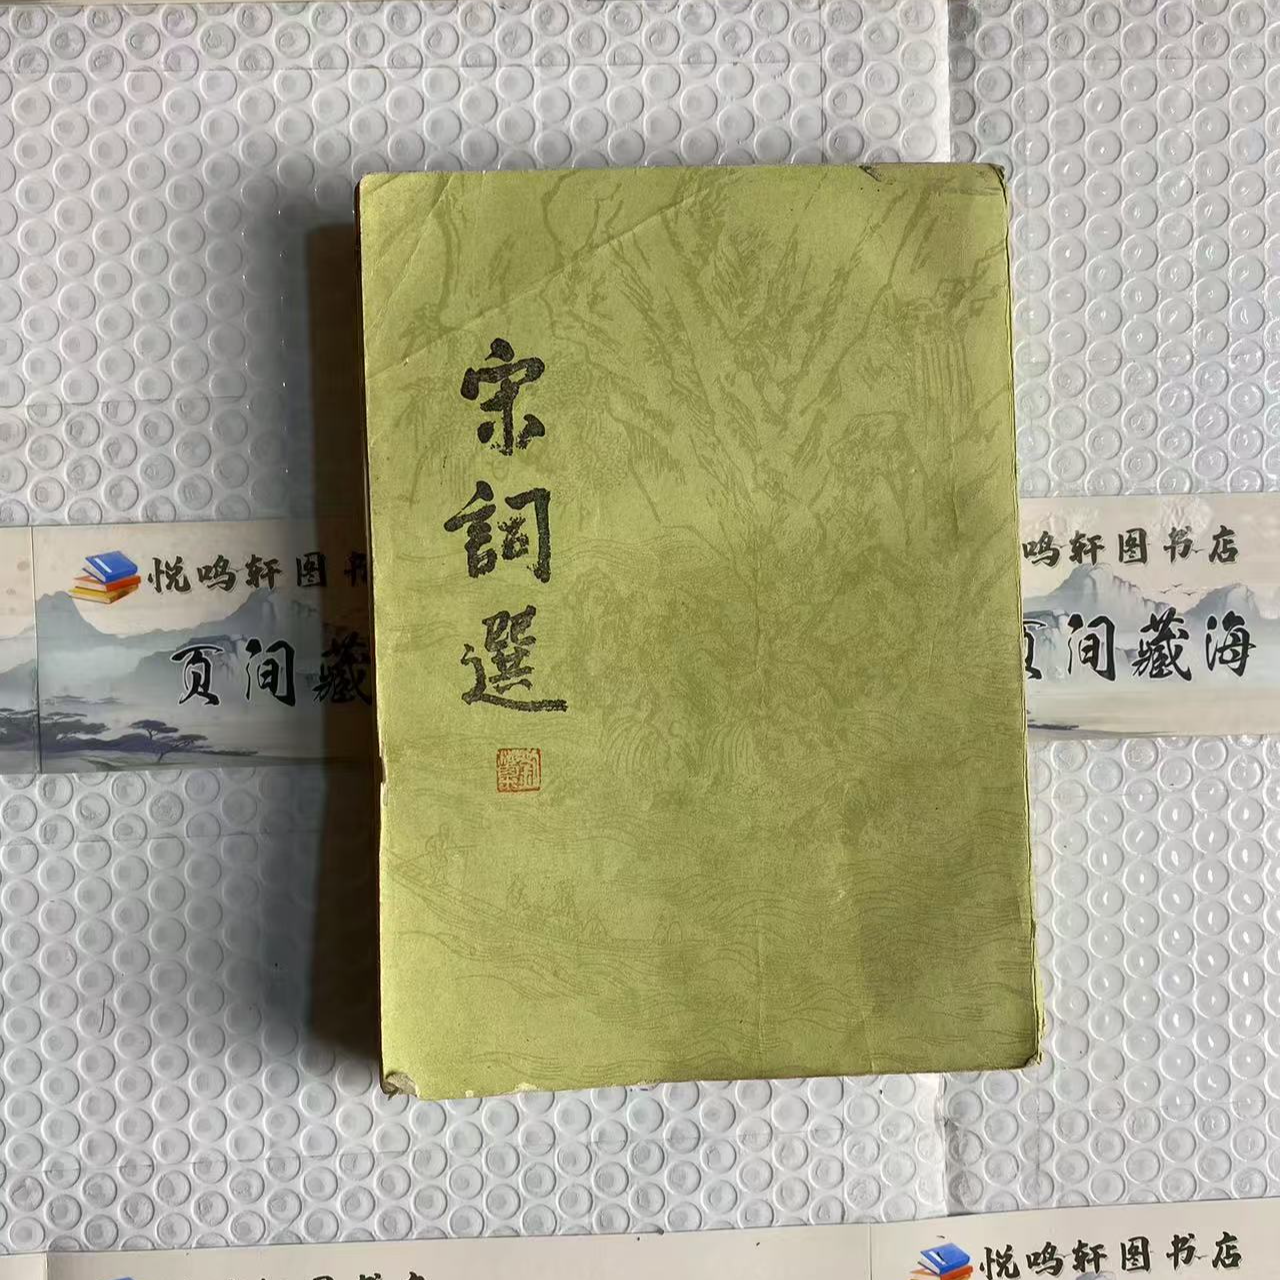 宋詞選
悦鸣轩图书
页间藏
鸣轩图书店
页间藏海
悦鸣轩图书店